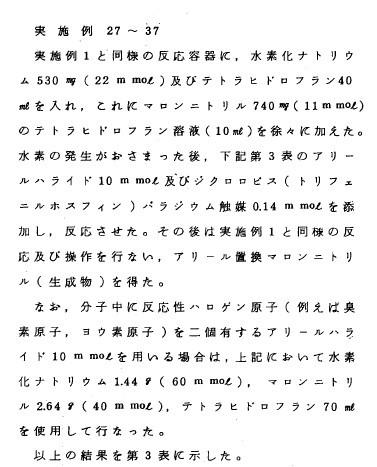 実施例 27～37
実施例1と同様の反応容器に，水素化ナトリウ
ム530㎎(22mmol)及びテトラヒドロフラン40
㎖を入れ，これにマロンニトリル740㎎(11mmol)
のテトラヒドロフラン溶液(10㎖)を徐々に加えた。
水素の発生がおさまった後，下記第3表のアリー
ルハライド10mmol及びジクロロビス(トリフェ
ニルホスフィン)パラジウム触媒0.14mmolを添
加し，反応させた。その後は実施例1と同様の反
応及び操作を行ない，アリール置換マロンニトリ
ル(生成物)を得た。
なお，分子中に反応性ハロゲン原子(例えば臭
素原子，ヨウ素原子)を二個有するアリールハラ
イド10mmolを用いる場合は，上記において水素
化ナトリウム1.44g(60mmol)，マロンニトリ
ル2.64g(40mmol)，テトラヒドロフラン70㎖
を使用して行なった。
以上の結果を第3表に示した。